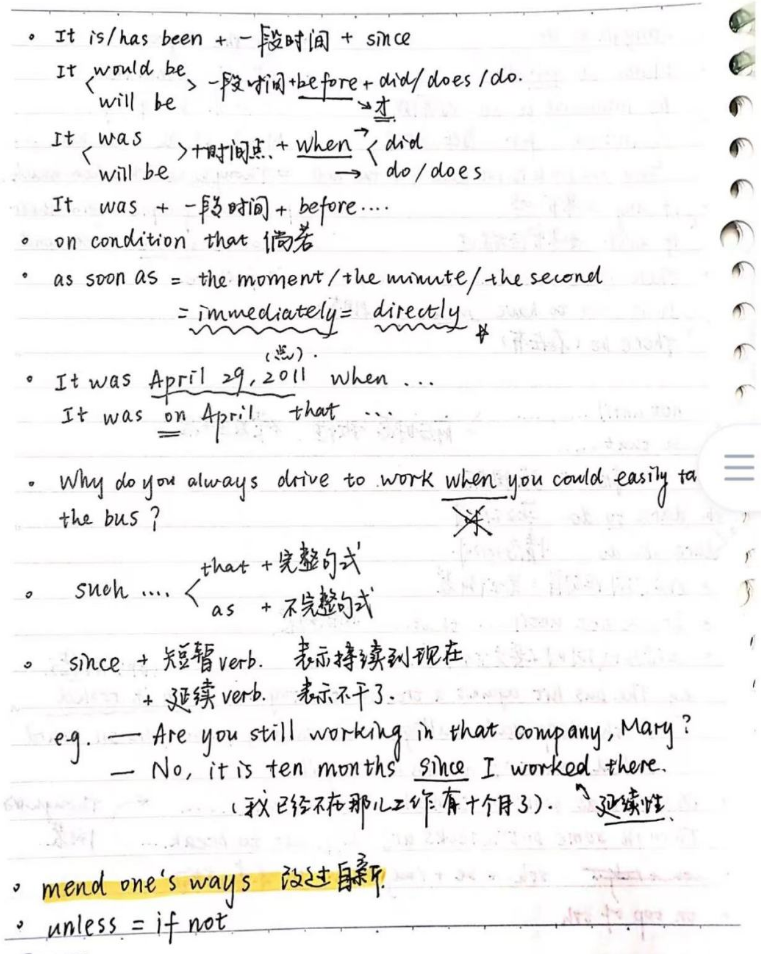 • It is/has been + 一段时间 + since
It < would be / will be > 一段时间+before + did/does/do.
→才
It < was / will be > +时间点 + when → < did
→ do/does
It was + 一段时间 + before....
• on condition that 倘若
• as soon as = the moment/the minute/the second
= immediately = directly
(点).
• It was April 29, 2011 when ...
It was on April that ...
• Why do you always drive to work when you could easily ta
the bus?
• such .... < that + 完整句式
as + 不完整句式
• since + 短暂verb. 表示持续到现在
+ 延续verb. 表示不干了.
e.g. — Are you still working in that company, Mary?
— No, it is ten months since I worked there.
(我已经不在那儿工作有十个月了). 延续性.
• mend one's ways 改过自新
• unless = if not